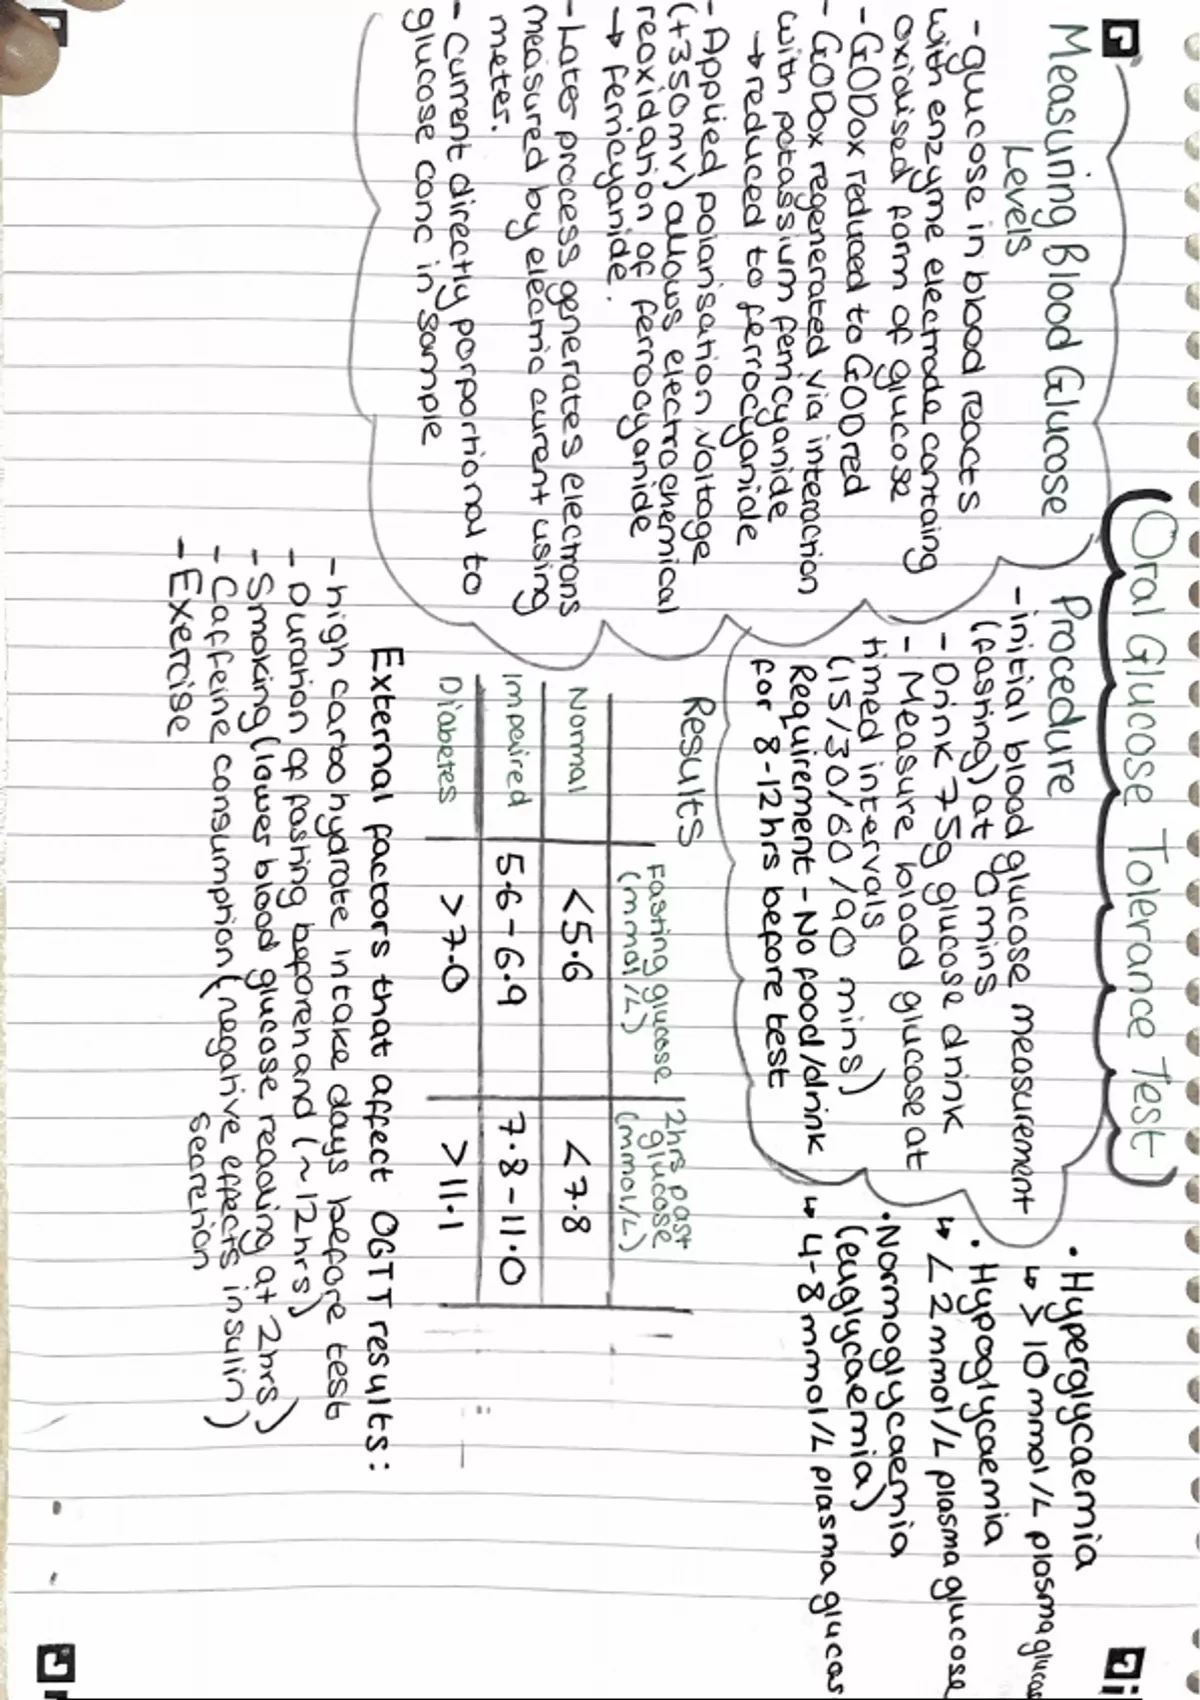 Oral Glucose Tolerance Test
Measuring Blood Glucose
Levels
- glucose in blood reacts
with enzyme electrode containg
oxidised form of glucose
- GODox reduced to GODred
- GODox regenerated via interaction
with potassium ferricyanide
→ reduced to ferrocyanide
- Applied polarisation voltage
(+350mv) allows electrochemical
reoxidation of ferrocyanide
→ ferricyanide.
- Later process generates electrons
measured by electric current using
meter.
- Current directly porportional to
glucose conc in sample
Procedure
- initial blood glucose measurement
(fasting) at 0 mins
- Drink 75g glucose drink
- Measure blood glucose at
timed intervals
(15/30/60/90 mins)
Requirement - No food/drink
for 8-12hrs before test
• Hyperglycaemia
↳ >10 mmol/L plasma glucos
• Hypoglycaemia
↳ <2 mmol/L plasma glucose
• Normoglycaemia
(euglycaemia)
↳ 4-8 mmol/L plasma glucos
Results
Fasting glucose 2hrs past
(mmol/L) glucose
(mmol/L)
Normal <5.6 <7.8
Impaired 5.6-6.9 7.8-11.0
Diabetes >7.0 >11.1
External factors that affect OGTT results:
- high carbohydrate intake days before test
- Duration of fasting beforenand (~12hrs)
- Smoking (lower blood glucose reading at 2hrs)
- Caffeine consumption (negative effects insulin)
secretion
- Exercise